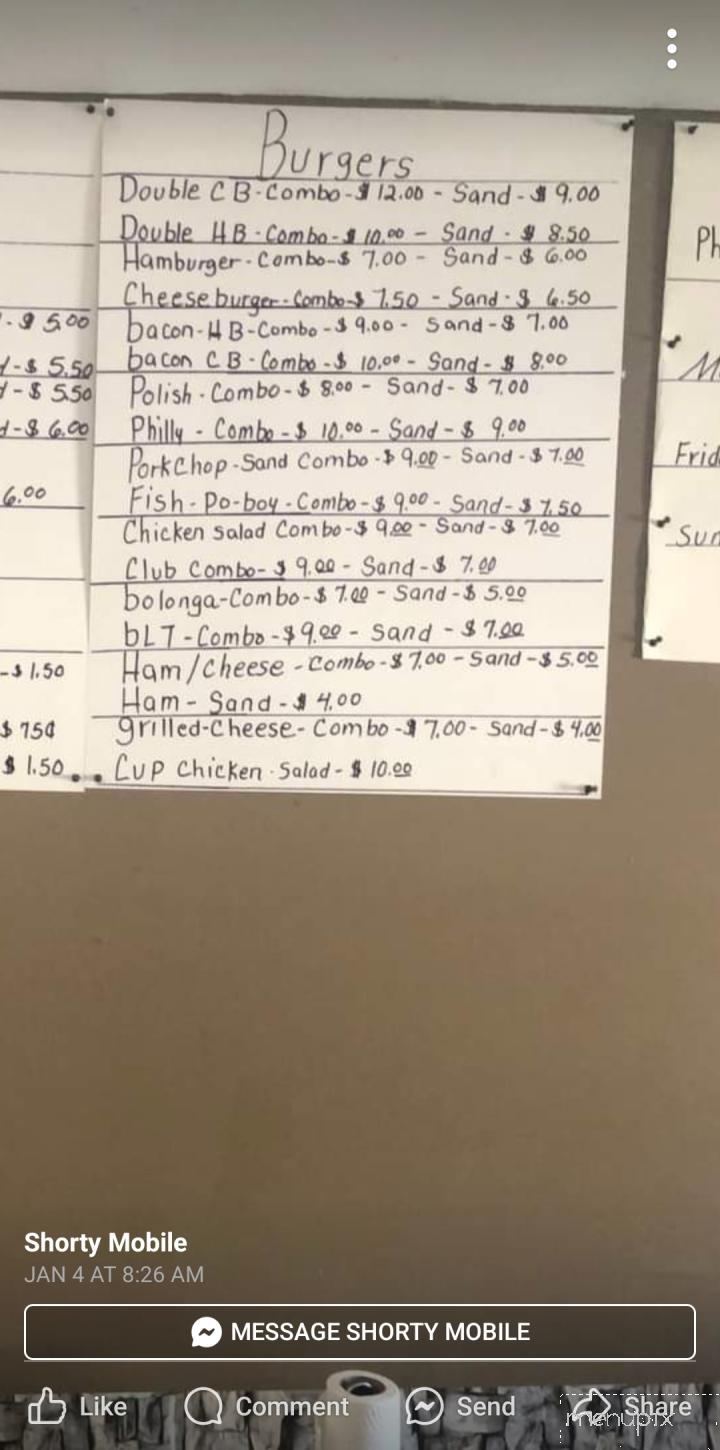 Burgers
Double CB-Combo-$12.00 - Sand-$9.00
Double HB-Combo-$10.00 - Sand-$8.50
Hamburger-Combo-$7.00 - Sand-$6.00
Cheeseburger-Combo-$7.50 - Sand-$6.50
bacon-HB-Combo-$9.00 - Sand-$7.00
bacon CB-Combo-$10.00 - Sand-$8.00
Polish-Combo-$8.00 - Sand-$7.00
Philly - Combo-$10.00 - Sand-$9.00
PorkChop-Sand Combo-$9.00 - Sand-$7.00
Fish-Po-boy-Combo-$9.00 - Sand-$7.50
Chicken Salad Combo-$9.00 - Sand-$7.00
Club Combo-$9.00 - Sand-$7.00
bolonga-Combo-$7.00 - Sand-$5.00
bLT-Combo-$9.00 - Sand-$7.00
Ham/Cheese-Combo-$7.00 - Sand-$5.00
Ham - Sand-$4.00
grilled-Cheese-Combo-$7.00 - Sand-$4.00
Cup Chicken-Salad-$10.00
-$5.00
d-$5.50
d-$5.50
d-$6.00
6.00
-$1.50
$75¢
$1.50
Ph
M
Frid
Sun
Shorty Mobile
JAN 4 AT 8:26 AM
MESSAGE SHORTY MOBILE
Like Comment Send Share
menupix